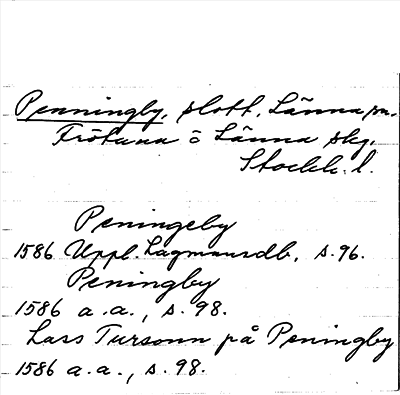 Penningby, slott, Länna sn.
Frötuna o Länna skg.
Stockh. l.
Peningeby
1586 Uppl. Lagmansdb, s. 96.
Peningby
1586 a.a., s. 98.
Lars Tursonn på Peningby
1586 a.a., s. 98.